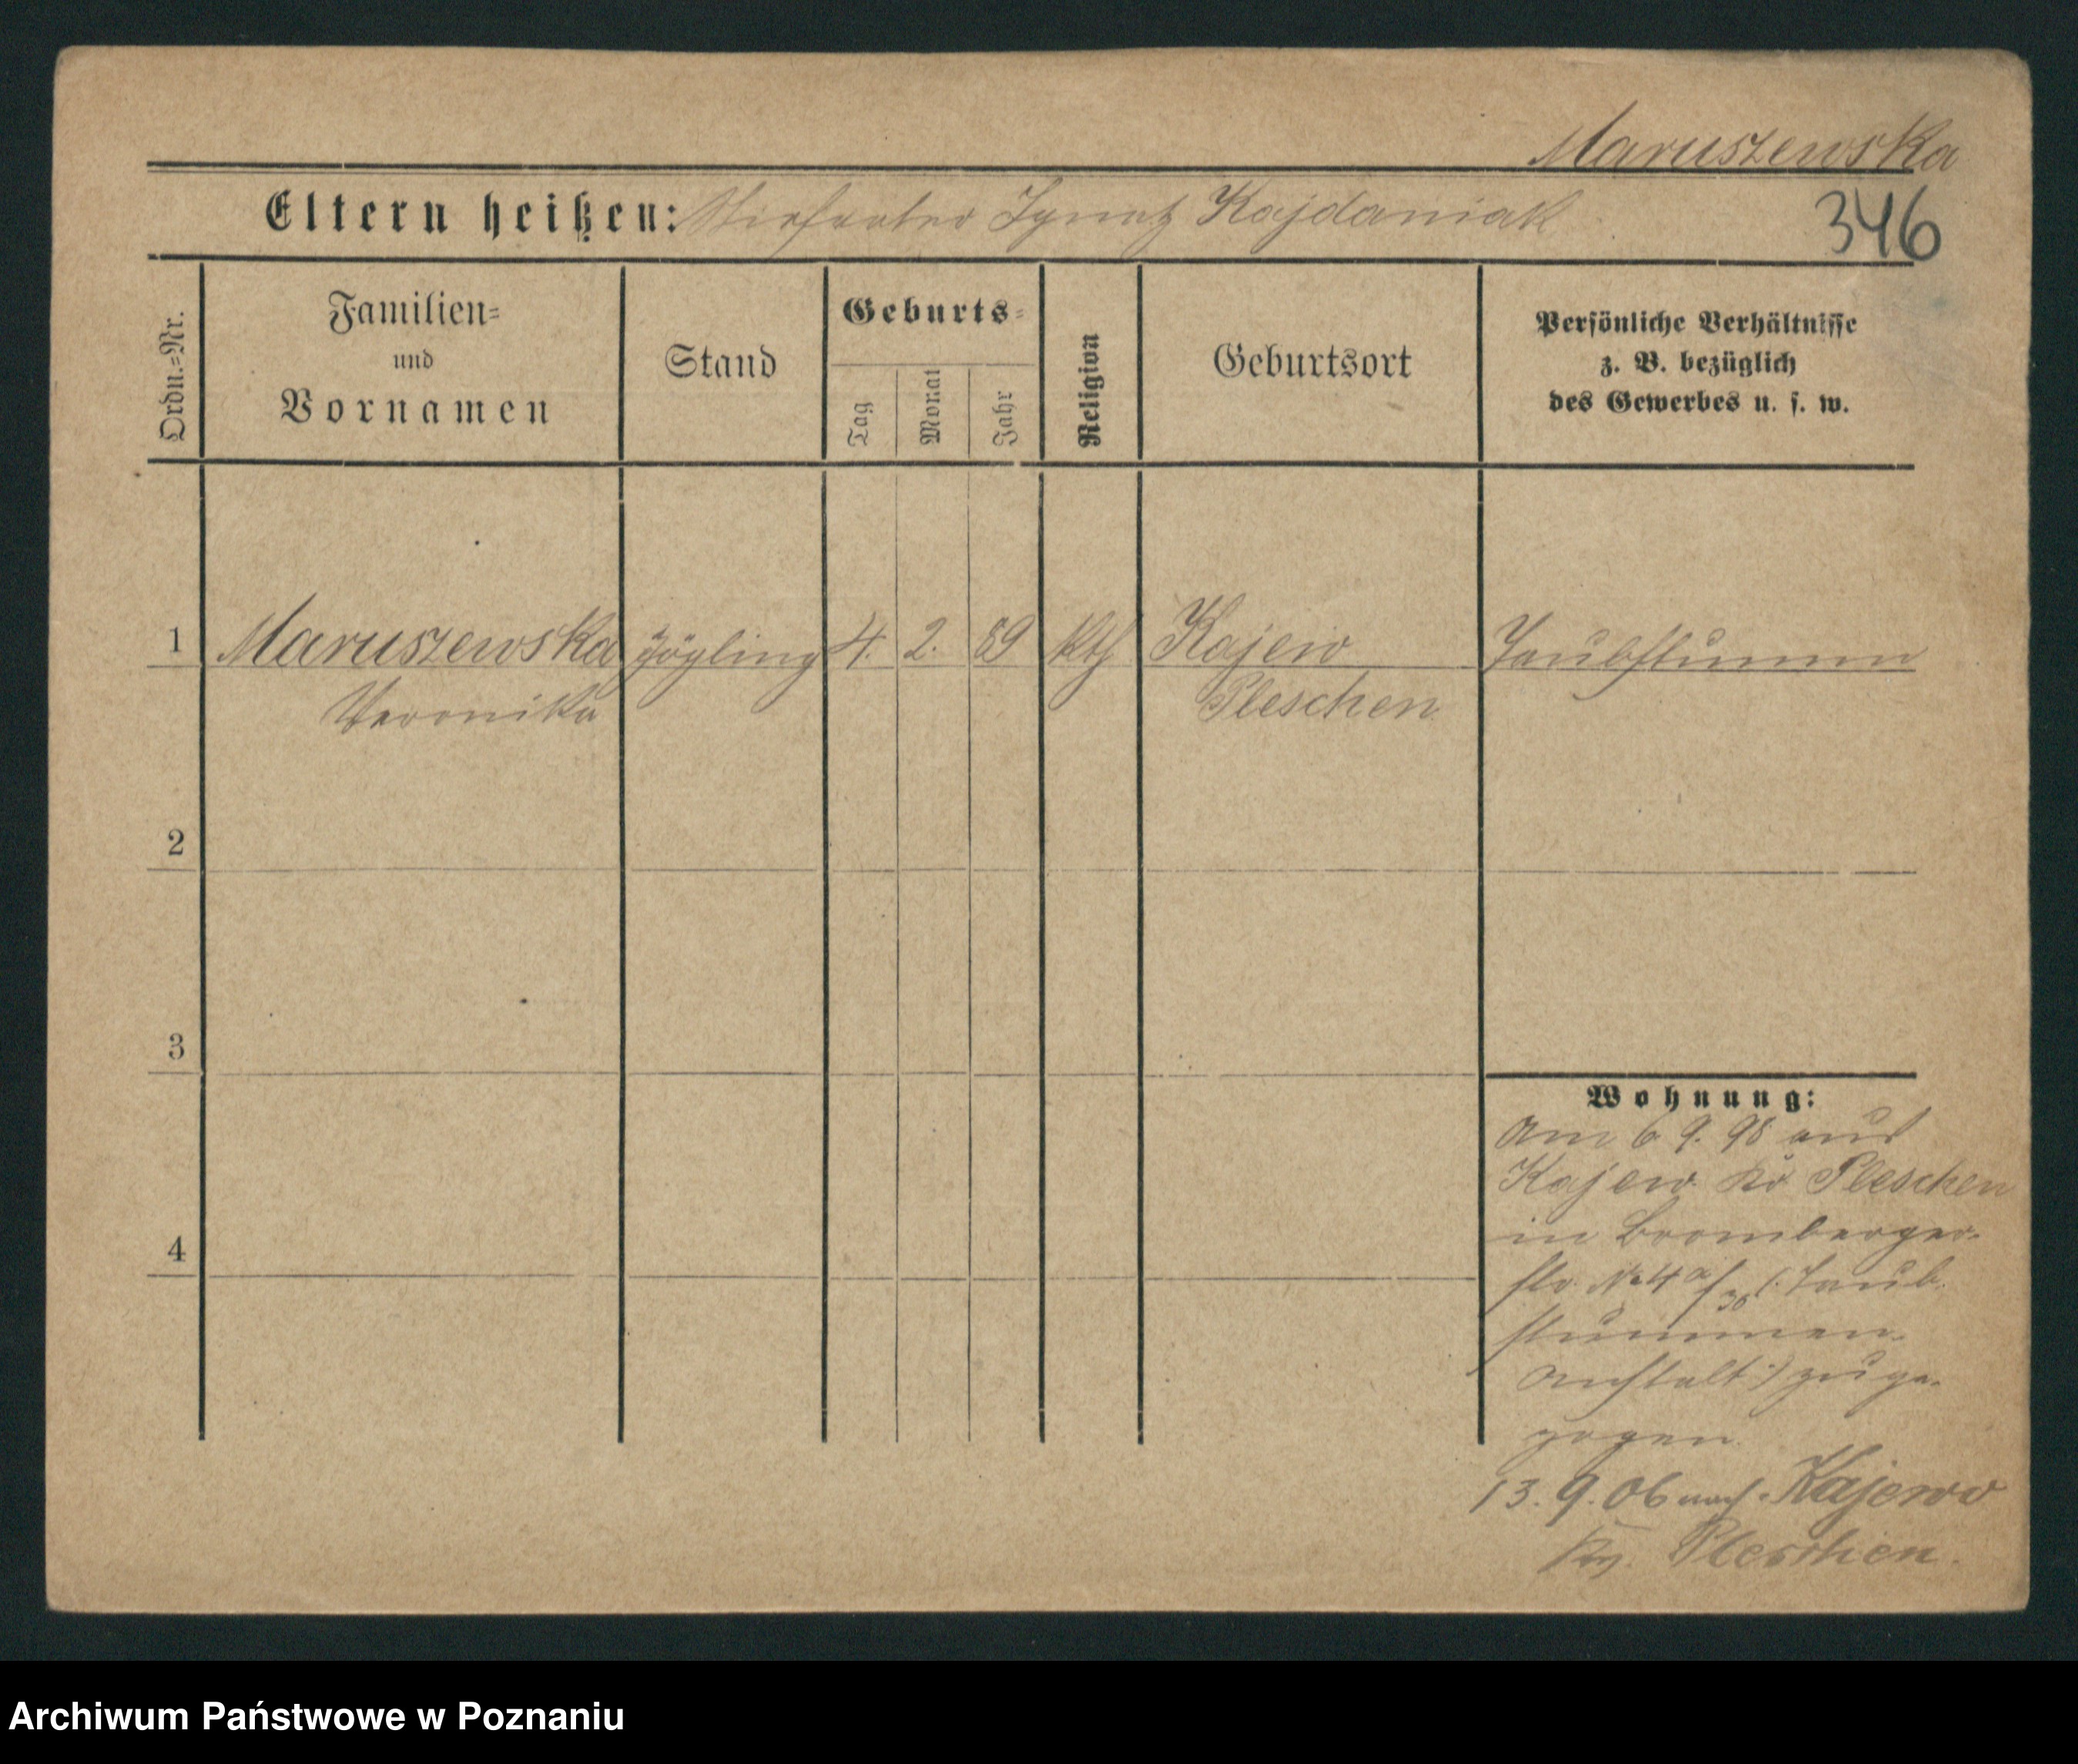 Maruszewska
Eltern heißen: Stiefvater Ignatz Kajdaniak
346
Ordn.=Nr.
Familien=
und
Vornamen
Stand
Geburts=
Tag
Monat
Jahr
Religion
Geburtsort
Persönliche Verhältnisse
z. B. bezüglich
des Gewerbes u. s. w.
1 Maruszewska Zögling 4. 2. 89 kth Kajew Taubstumm
Veronika Pleschen
2
3
4
Wohnung:
Am 6 9. 98 aus
Kajew Kr Pleschen
in Bromberger-
str. No 4a (: Taub-
stummen-
Anstalt :) zuge-
zogen
13. 9. 06 nach Kajewo
Pleschen.
Archiwum Państwowe w Poznaniu